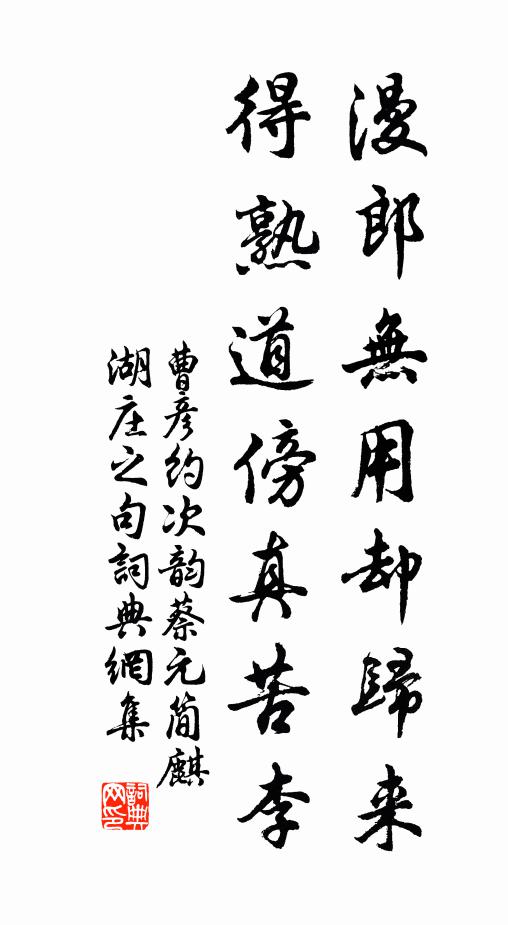 漫郎無用却歸来
得熟道傍真苦李
曹彥約次韵蔡元简麒
湖庄之句詞典網集
詞典网印